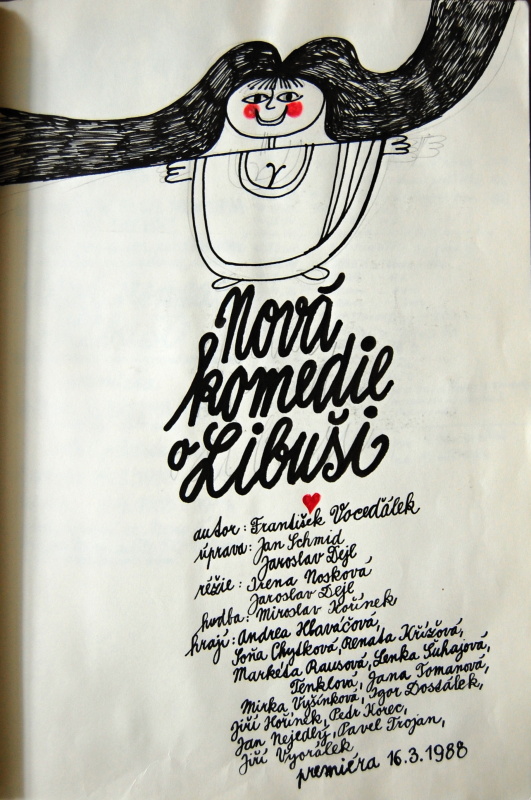 Nová
komedie
o Libuši
autor: František Vocedálek
úprava: Jan Schmid
Jaroslav Dejl
režie: Irena Nosková
Jaroslav Dejl
hudba: Miroslav Hořínek
hrají: Andrea Hlaváčová,
Soňa Chytková, Renata Křížová,
Markéta Rausová, Lenka Suhajová,
Ténklová, Jana Tomanová,
Mirka Vyšínková, Igor Dostálek,
Jiří Hořínek, Petr Horec,
Jan Nejedlý, Pavel Trojan,
Jiří Vyorálek
premiéra 16.3.1988